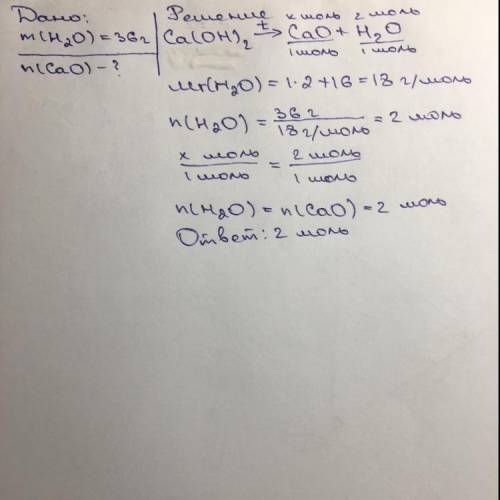 Дано:
m(H₂O) = 36 г
n(CaO) - ?
Решение
x моль 2 моль
Ca(OH)₂ t→ CaO + H₂O
1 моль 1 моль
Mr(H₂O) = 1·2+16 = 18 г/моль
n(H₂O) = 36 г / 18 г/моль = 2 моль
x моль / 1 моль = 2 моль / 1 моль
n(H₂O) = n(CaO) = 2 моль
Ответ: 2 моль